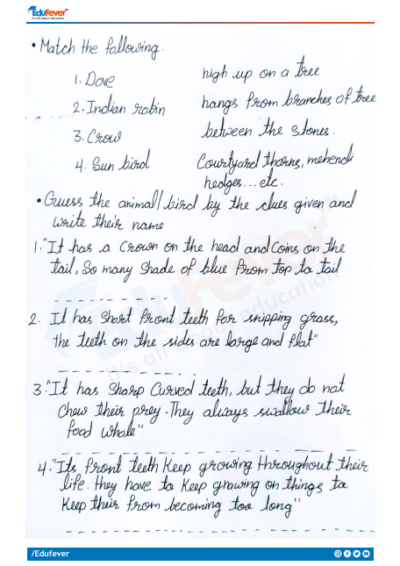 EduFever
• Match the following.
1. Dove high up on a tree
2. Indian robin hangs from branches of tree
3. Crow between the stones.
4. Sun bird Courtyard thorns, mehendi
hedges... etc.
• Guess the animal/bird by the clues given and
write their name
1. "It has a Crown on the head and Coins on the
tail, So many shade of blue from top to tail
2. It has short front teeth for snipping grass,
the teeth on the sides are large and flat"
3 "It has sharp Curved teeth, but they do not
Chew their prey. They always swallow their
food whole"
4. "Its front teeth keep growing throughout their
life. they have to keep gnawing on things to
keep their from becoming too long"
/Edufever